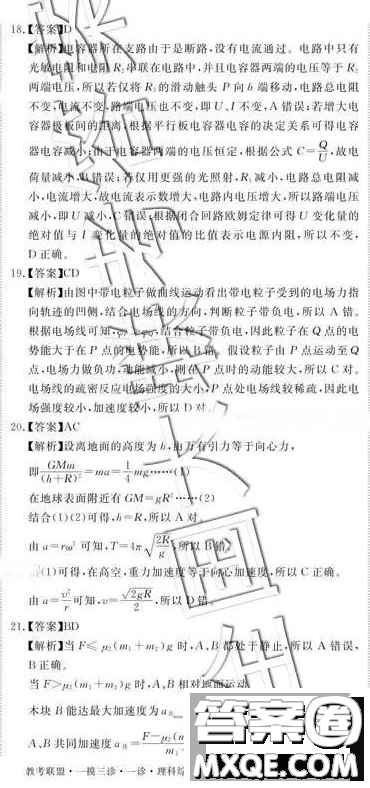 18.【答案】D
【解析】电容器所在支路由于是断路,没有电流通过。电路中只有
光敏电阻和电阻R₂串联在电路中,并且电容器两端的电压等于R₂
两端电压,所以若仅将R₂的滑动触头P向b端移动,电路总电阻
不变,电流不变,路端电压也不变,即U、I不变,A错误;若增大电
容器极板间的距离,根据平行板电容器电容的决定关系可得电容
器电容减小;由于电容器两端的电压恒定,根据公式C=Q/U,故电
荷量减小,B错误;若仅用更强的光照射,R₁减小,电路总电阻减
小,电流增大,故电流表示数增大,电路内电压增大,所以路端电压
减小,即U减小,C错误;根据闭合回路欧姆定律可得U变化量的
绝对值与I变化量的绝对值的比值表示电源内阻,所以不变,
D正确。
19.【答案】CD
【解析】由图中带电粒子做曲线运动看出带电粒子受到的电场力指
向轨迹的凹侧,结合电场线的方向,判断粒子带负电,所以A错。
根据电场线可知,结合粒子带负电,因此粒子在Q点的电
势能大于在P点的电势能,所以B错。假设粒子由P点运动至Q
点,电场力做负功,动能减小,则在P点时的动能较大,所以C对。
电场线的疏密反应电场强度的大小,P点处电场线较稀疏,因此电
场强度较小,加速度较小,所以D对。
20.【答案】AC
【解析】设离地面的高度为h,由万有引力等于向心力,
即GMm/(h+R)²=ma=1/4mg……(1)
在地球表面附近有GM=gR²……(2)
结合(1)(2)可得,h=R,所以A对。
由a=rω²可知,T=4π√(2R/g),所以B错。
(1)可得,在高空,重力加速度等于向心加速度,所以C正确。
由a=v²/r可知,v=√(2gR)/2,所以D错。
21.【答案】BD
【解析】当F≤μ₂(m₁+m₂)g时,A、B都处于静止,所以A错误,
B正确。
当F>μ₂(m₁+m₂)g时,A、B相对地面运动,
木块B能达最大加速度为a_Bmax
A、B共同加速度a共=F-μ₂(m
m₁
教考联盟·一摸三诊·一诊·理科综
答案卷
MXQE.COM